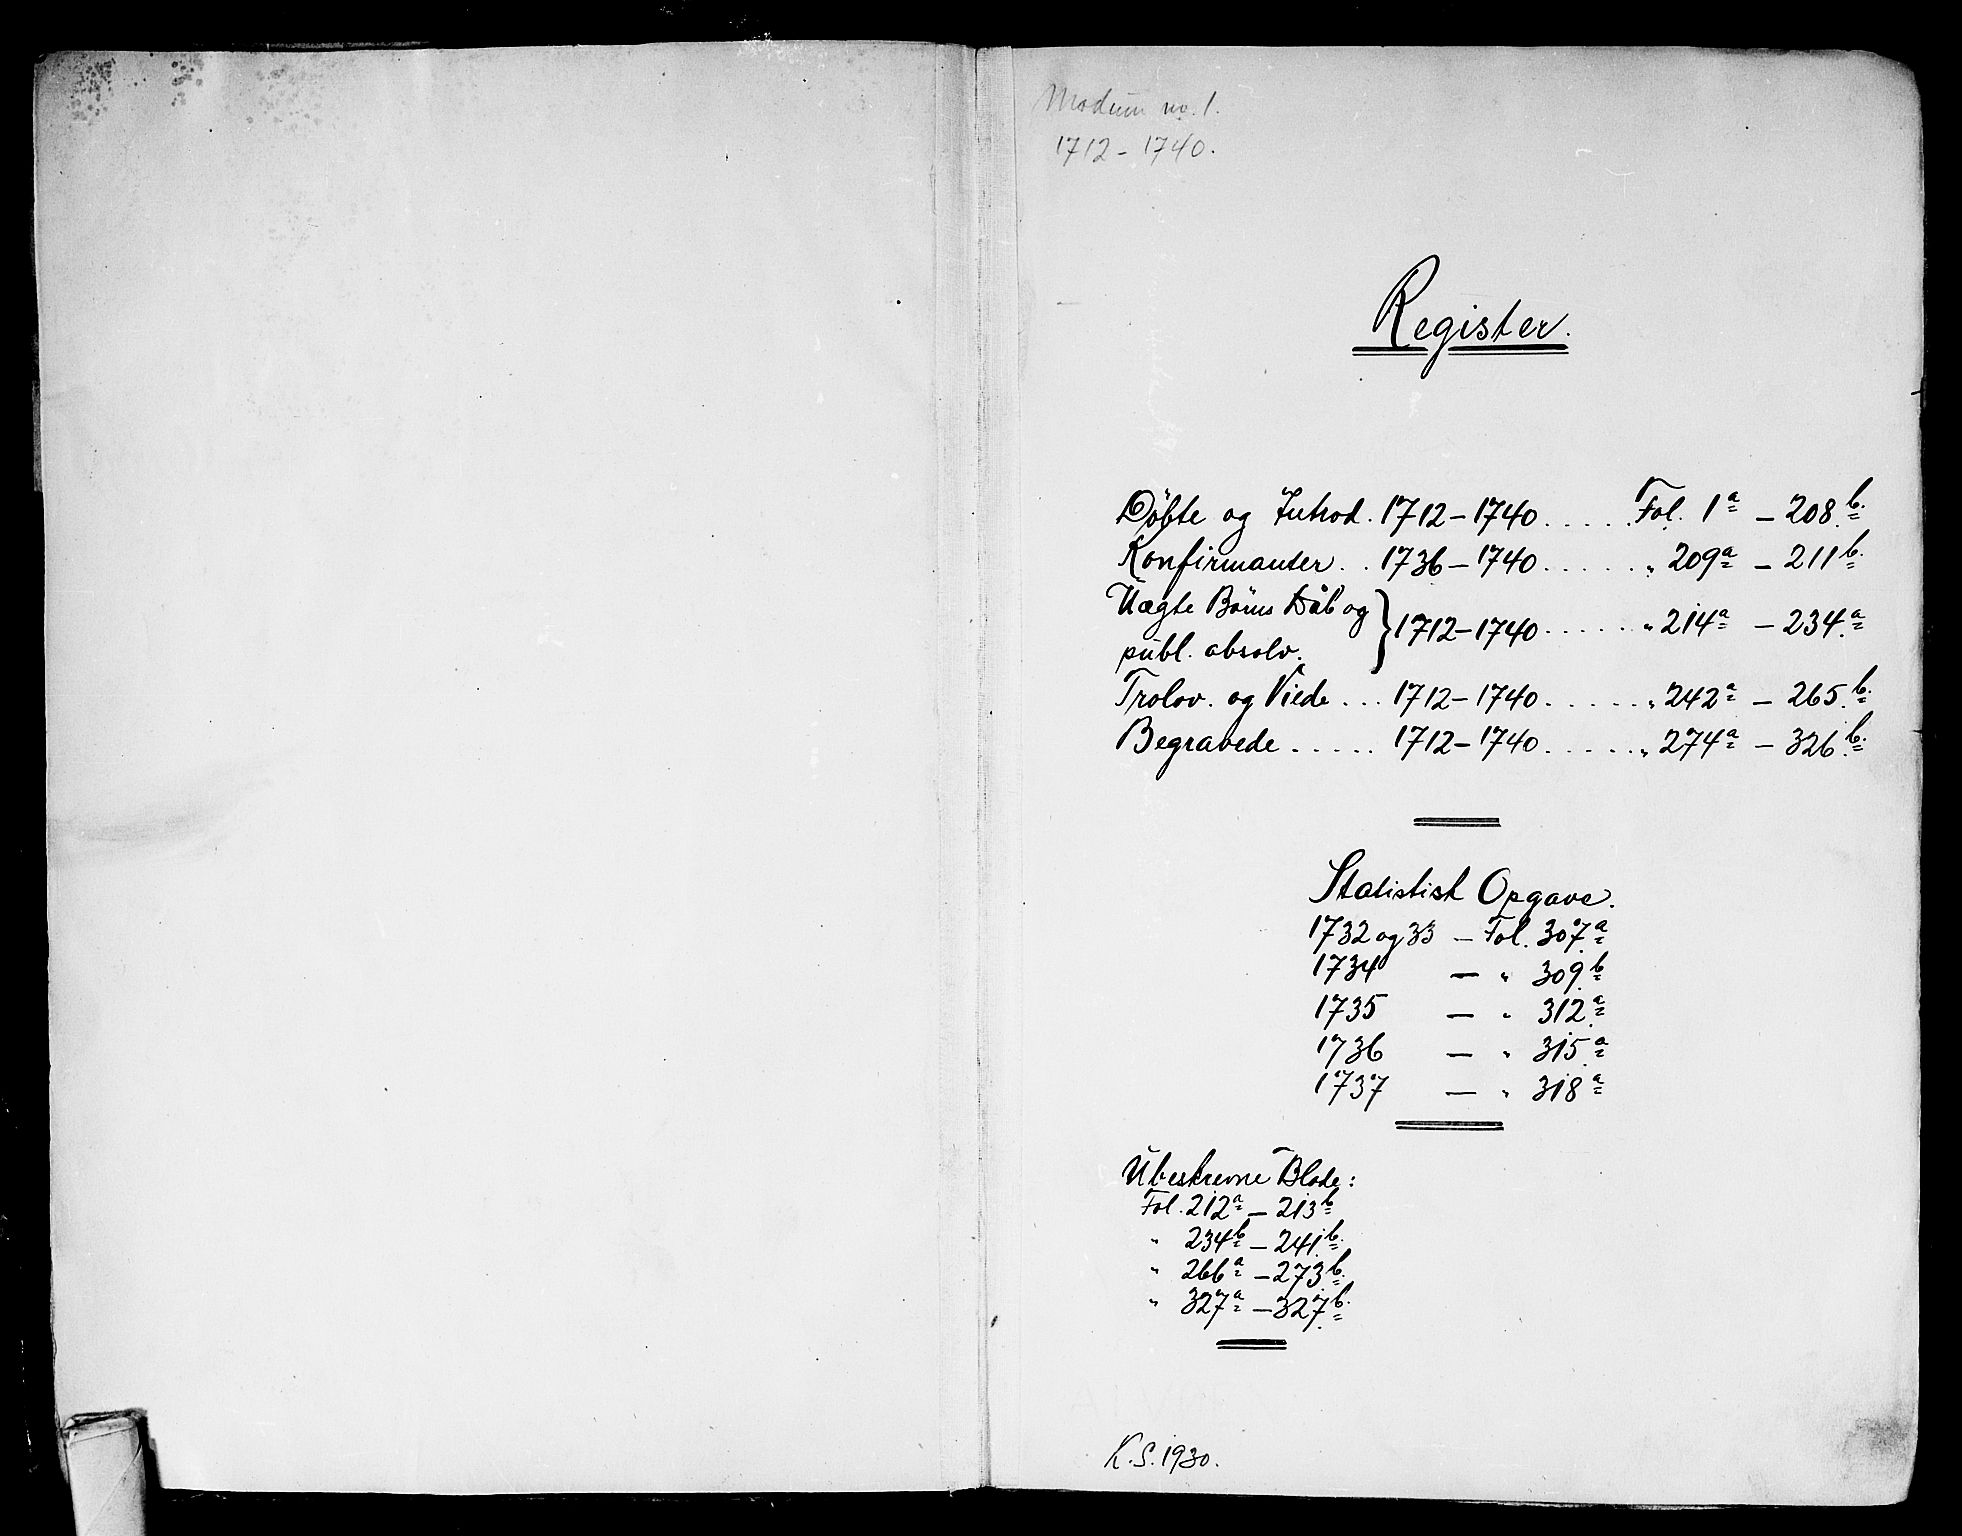 Modum no. 1.
1712 - 1740.
Register.
Döbte og Introd. 1712 – 1740 ..... Fol. 1a – 208b.
Konfirmanter .. 1736 – 1740 ...... " 209a – 211b.
Uægte Börns Dåb og } 1712 – 1740 ...... " 214a – 234a.
publ. absolv.
Trolov. og Viede ... 1712 – 1740 ...... " 242a – 265b.
Begravede ..... 1712 – 1740 ...... " 274a – 326b.
Statistisk Opgave.
1732 og 33 – Fol. 307a
1734 – " 309b
1735 – " 312a
1736 – " 315a
1737 – " 318a
Ubeskrevne Blade:
Fol. 212a – 213b
" 234b – 241b.
" 266a – 273b.
" 327a – 327b.
K.S. 1930.